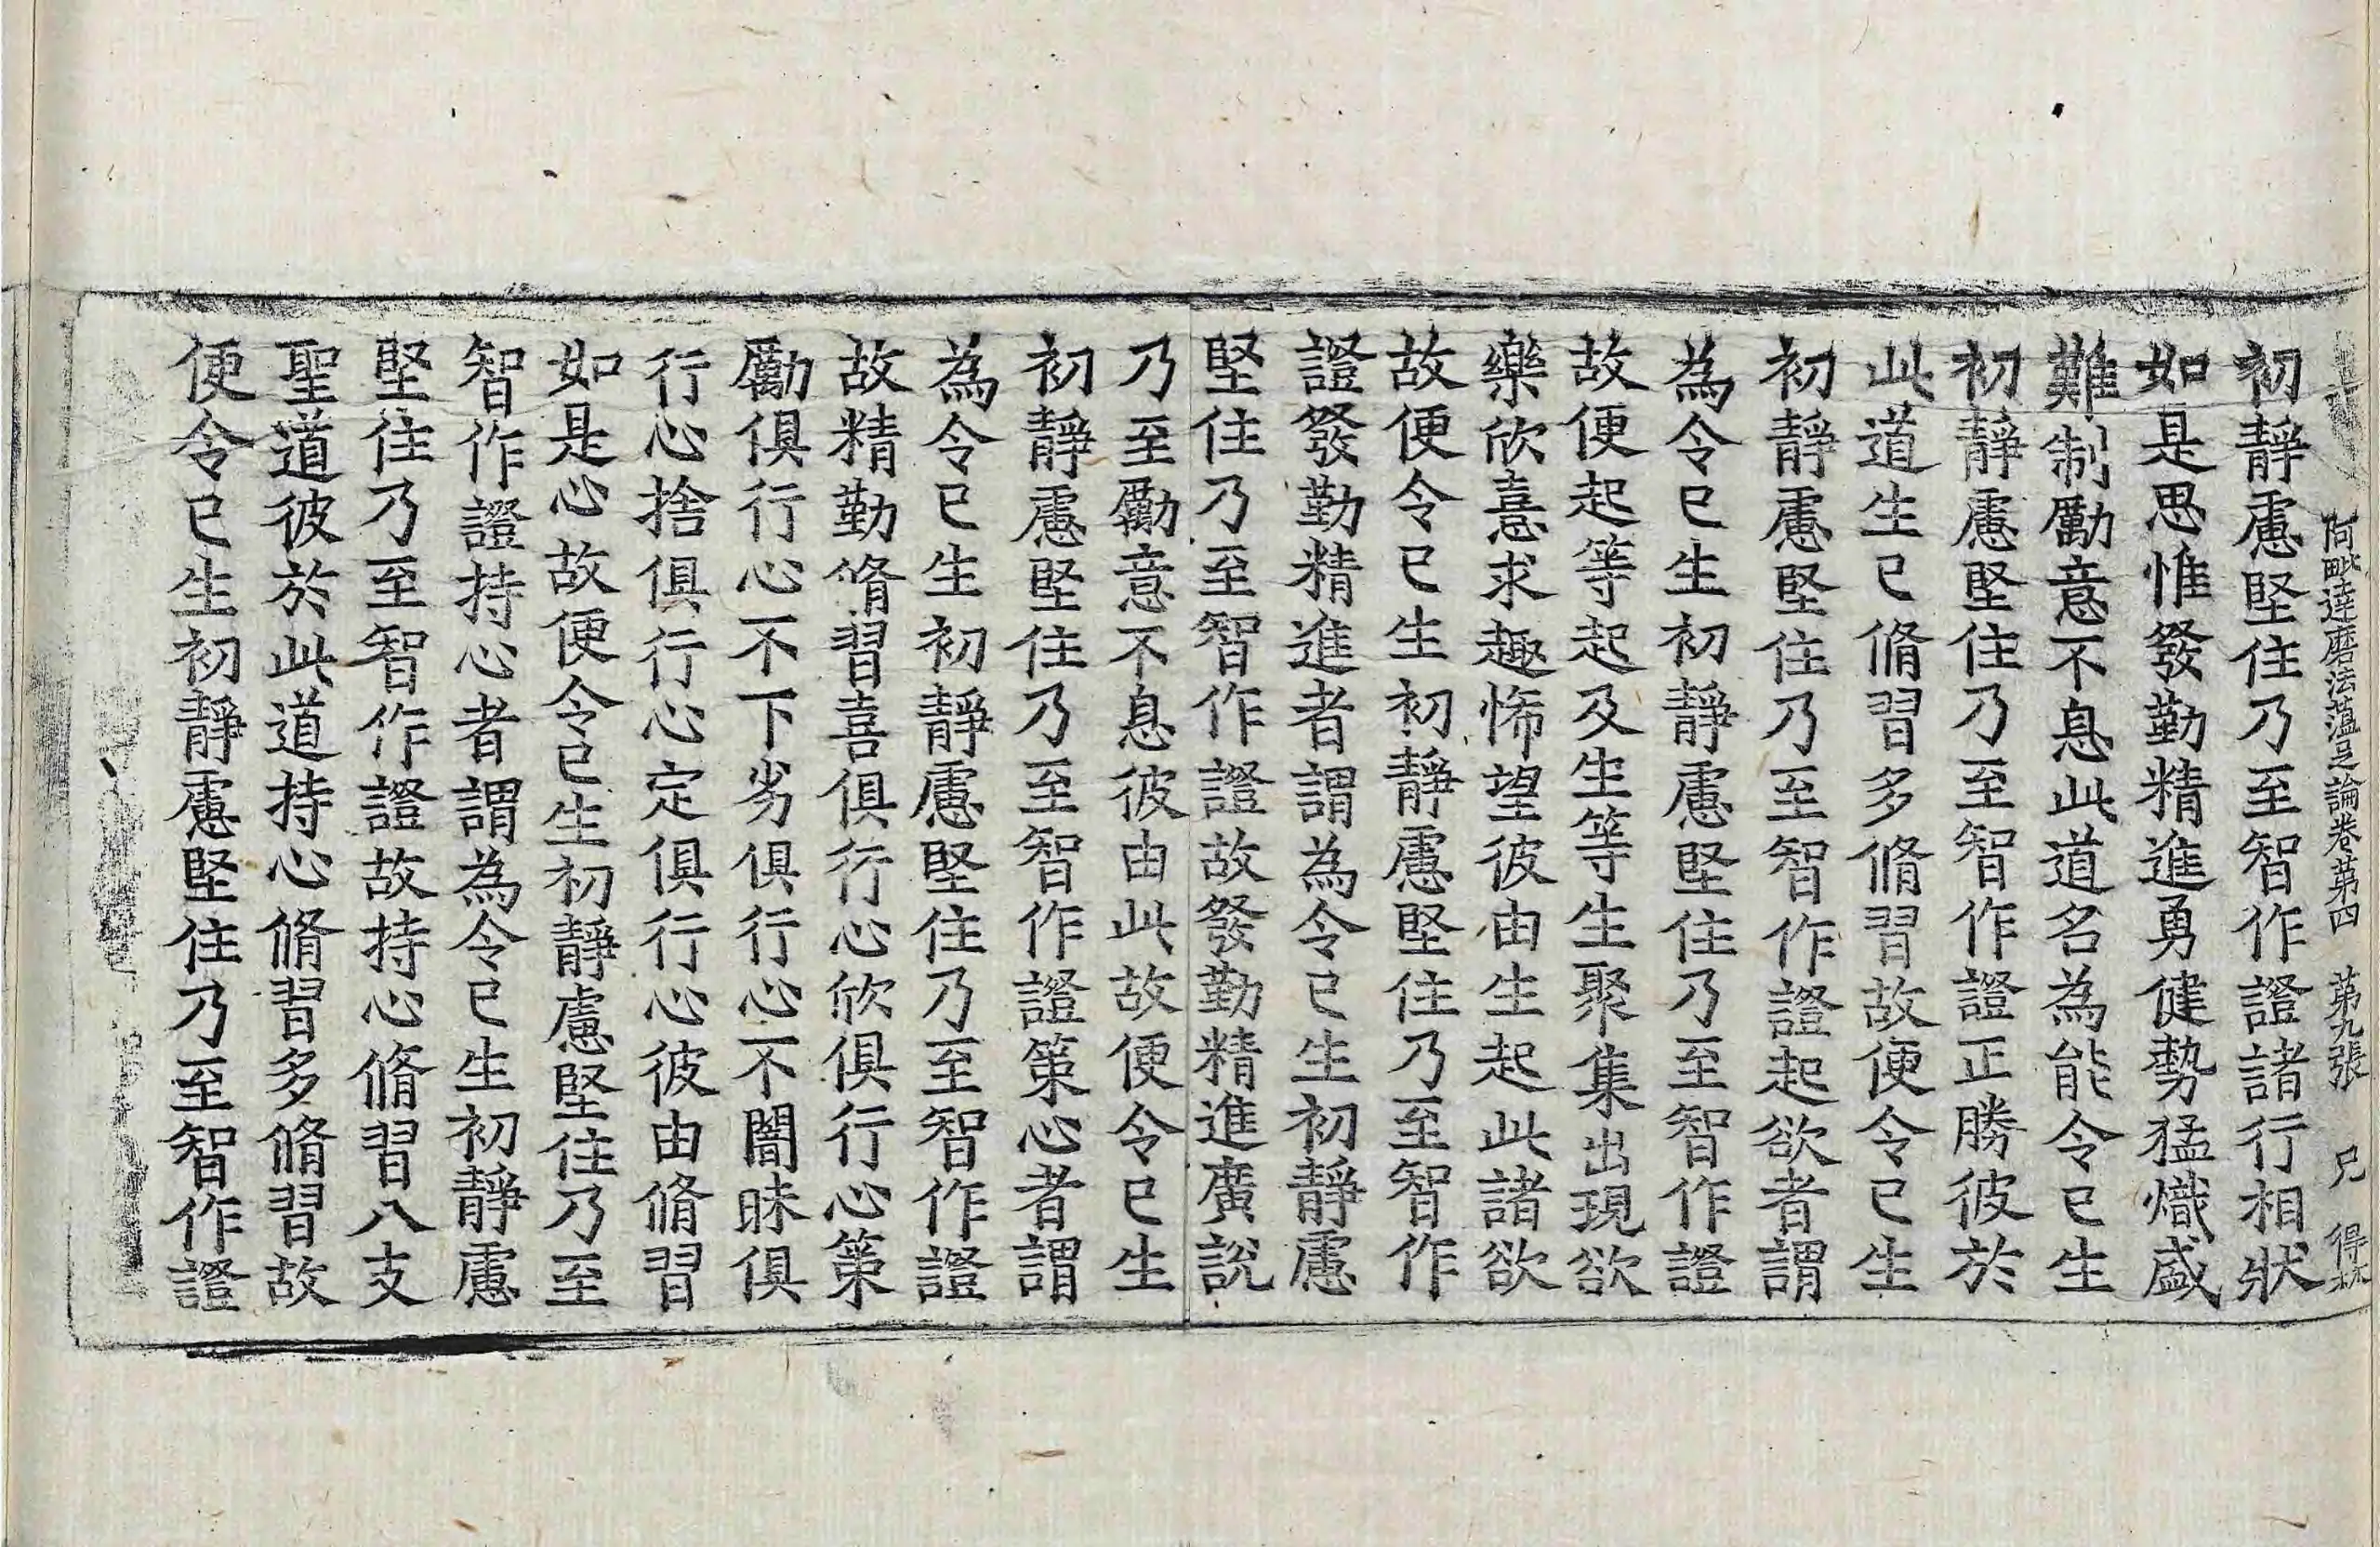 阿毗達磨法蘊足論卷第四 第九張 兄 得林
初靜慮堅住乃至智作證諸行相狀
如是思惟發勤精進勇健勢猛熾盛
難制勵意不息此道名為能令已生
初靜慮堅住乃至智作證正勝彼於
此道生已脩習多脩習故便令已生
初靜慮堅住乃至智作證起欲者謂
為令已生初靜慮堅住乃至智作證
故便起等起及生等生聚集出現欲
樂欣憙求趣悕望彼由生起此諸欲
故便令已生初靜慮堅住乃至智作
證發勤精進者謂為令已生初靜慮
堅住乃至智作證故發勤精進廣說
乃至勵意不息彼由此故便令已生
初靜慮堅住乃至智作證策心者謂
為令已生初靜慮堅住乃至智作證
故精勤脩習喜俱行心欣俱行心策
勵俱行心不下劣俱行心不闇昧俱
行心捨俱行心定俱行心彼由脩習
如是心故便令已生初靜慮堅住乃至
智作證持心者謂為令已生初靜慮
堅住乃至智作證故持心脩習八支
聖道彼於此道持心脩習多脩習故
便令已生初靜慮堅住乃至智作證